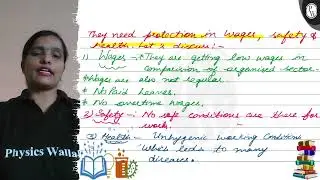 They need protection in wages, safety &
health. Let's discuss:-
1) Wages → They are getting low wages in
comparision of organised sector.
* Wages are also not regular
* No Paid Leaves.
* No overtime wages.
2) Safety → No safe conditions are there for
work.
3) Health → Unhygenic working conditions
which leads to many
diseases.
Physics Wallah